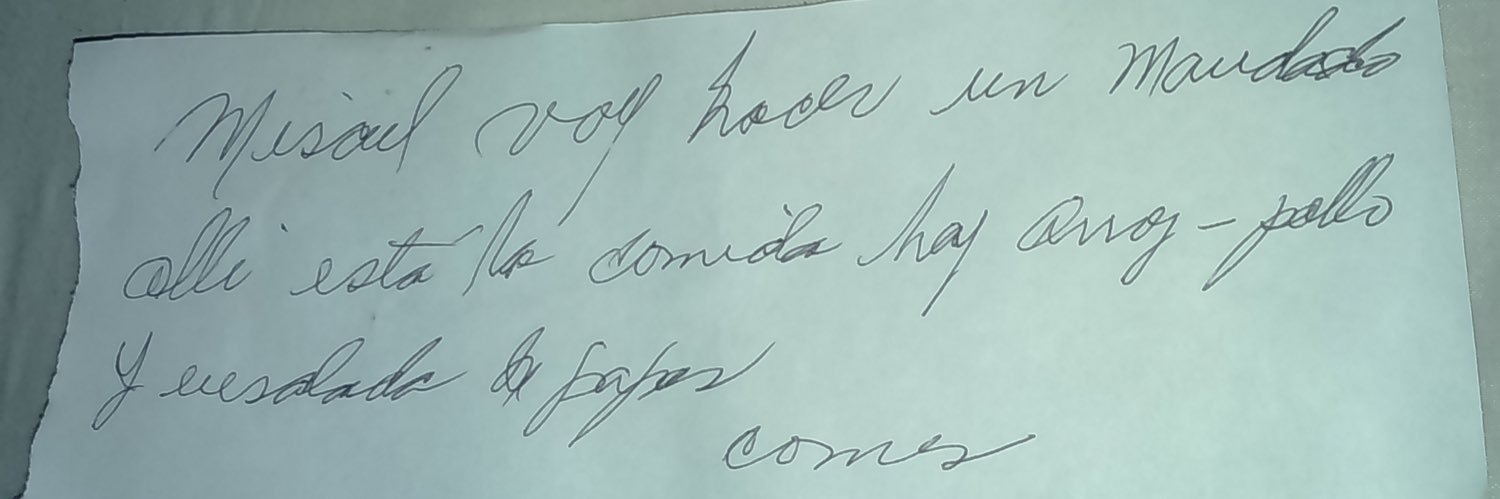 Misael voy hacer un mandado
alli esta la comida hay arroz - pollo
y ensalada de papas
comes